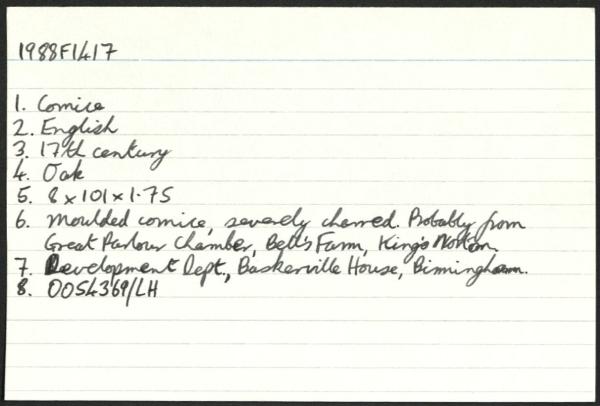 1988F1417
1. Cornice
2. English
3. 17th century
4. Oak
5. 8 x 101 x 1.75
6. Moulded cornice, severely charred. Probably from
Great Parlour Chamber, Bell's Farm, King's Norton.
7. Development Dept., Baskerville House, Birmingham.
8. 0054369/LH